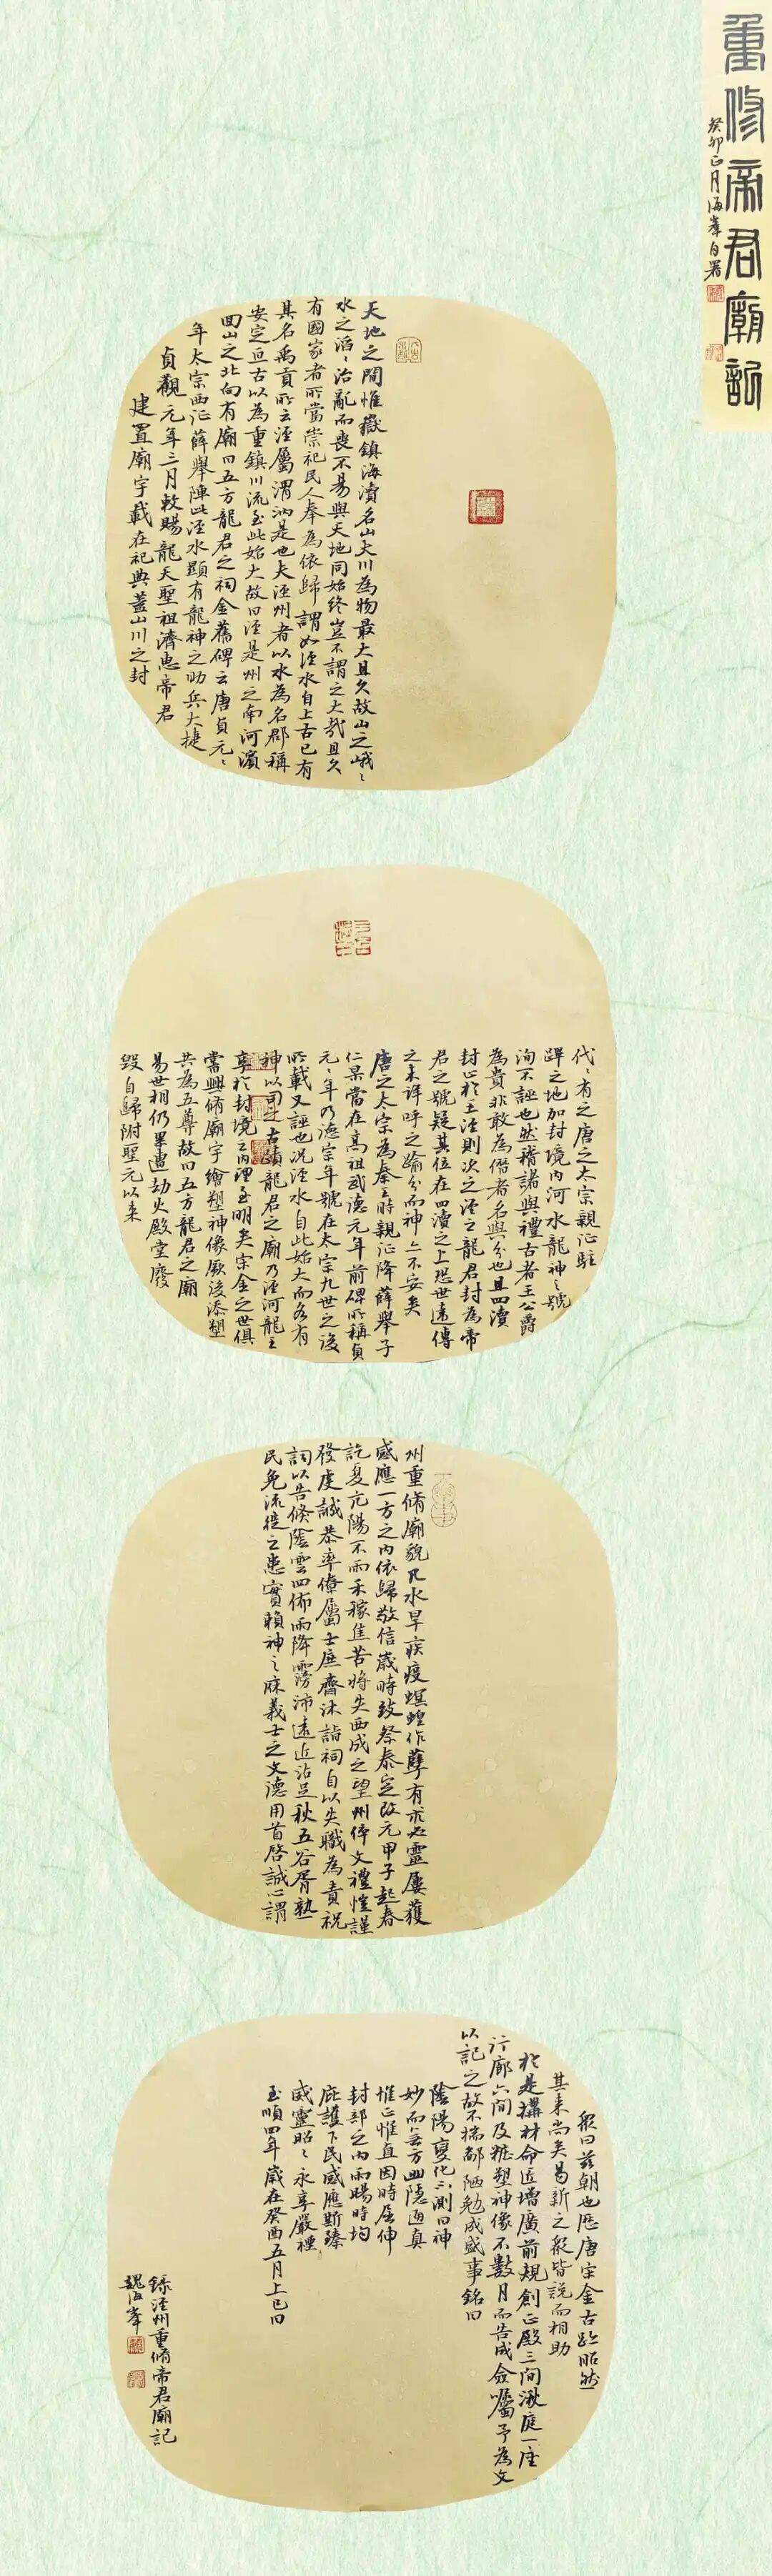 重修帝君廟記
癸卯正月海峯自署
天地之間惟嶽鎮海瀆名山大川為物最大且久故山之峨〻
水之滔〻治亂而喪不易與天地同始終豈不謂之大哉且久
有國家者所當崇祀民人奉為依歸謂如涇水自上古已有
其名禹貢所云涇屬渭汭是也夫涇州者以水為名郡稱
安定亘古以為重鎮川流至此始大故曰涇是州之南河濱
回山之北向有廟曰五方龍君之祠金舊碑云唐貞元〻
年太宗西征薛舉陣此涇水顯有龍神之助兵大捷
貞觀元年三月敕賜龍天聖祖濟惠帝君
建置廟宇載在祀典蓋山川之封
代〻有之唐之太宗親征駐
蹕之地加封境內河水龍神之號
洵不誣也然稽諸典禮古者王公爵
為貴非敢為僭者名與分也且四瀆
封止於王涇則次之涇之龍君封為帝
君之號疑其位在四瀆之上恐世遠傳
之未詳呼之踰分而神亦不安矣
唐之太宗為秦王時親征降薛舉子
仁杲當在高祖武德元年前碑所稱貞
元〻年乃德宗年號在太宗九世之後
所載又誣也況涇水自此始大而各有
神以司之古蹟龍君之廟乃涇河龍王
享於封境之內理至明矣宋金之世俱
嘗興脩廟宇繪塑神像厥後添塑
共為五尊故曰五方龍君之廟
易世相仍畢遭劫火殿堂廢
毀自歸附聖元以來
州重脩廟貌凡水旱疾疫螟蝗作孽有求必靈屢獲
感應一方之內依歸敬信歲時致祭泰定改元甲子起春
訖夏亢陽不雨禾稼焦苦將失西成之望州倅文禮愷謹
發虔誠恭率僚屬士庶齋沐詣祠自以失職為責祝
詞以告倏陰雲四佈雨降霶沛遠近沾足秋五谷胥熟
民免流徙之患實賴神之庥義士之文德用首啓誠心謂
眾曰茲朝也歷唐宋金古跡昭然
其來尚矣曷新之眾皆說而相助
於是構材命匠增廣前規創正殿三間湫庭一座
行廊六間及粧塑神像不數月而告成僉囑予為文
以記之故不揣鄙陋勉成盛事銘曰
陰陽變化不測曰神
妙而無方幽隱通真
惟正惟直因時屈伸
封部之內雨暘時均
庇護下民感應斯臻
威靈昭〻永享嚴禋
至順四年歲在癸酉五月上巳日
錄涇州重脩帝君廟記
魏海峯